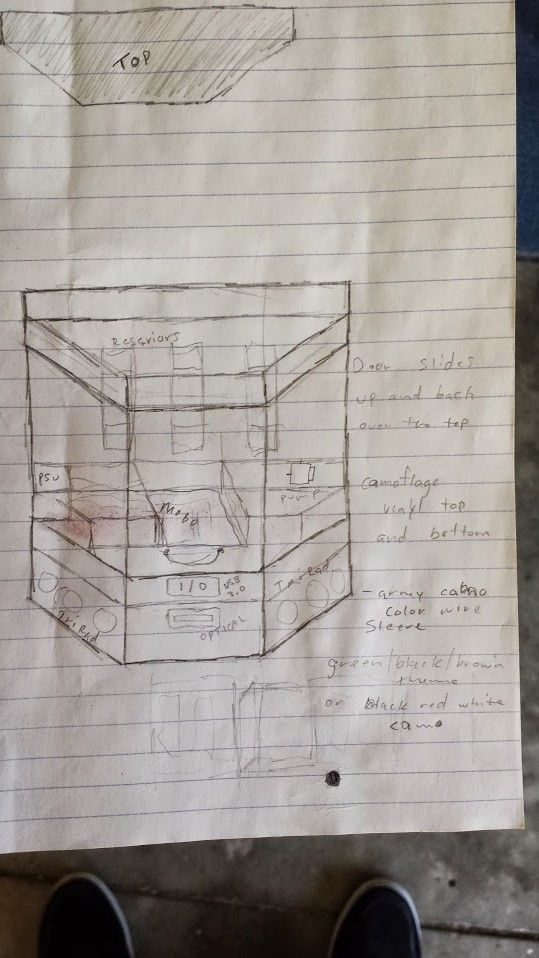 TOP
Reserviors
Door slides
up and back
over the top
PSU
pump
camoflage
vinyl top
and bottom
Mobo
I/O
USB
3.0
Trirad
Trirad
OPTICAL
- army camo
color wire
Sleeve
green/black/brown
theme
or black red white
camo